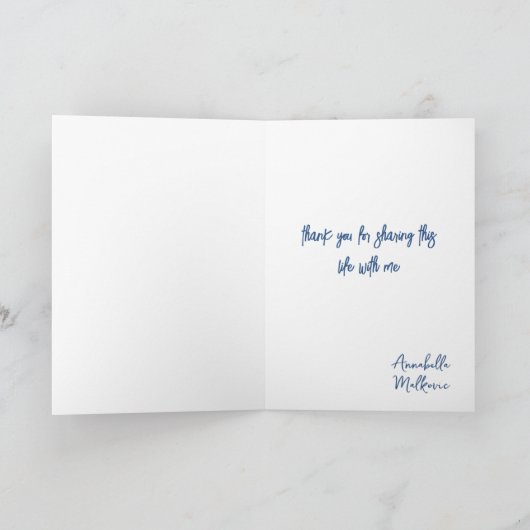 thank you for sharing this
life with me
Annabella
Malkovic